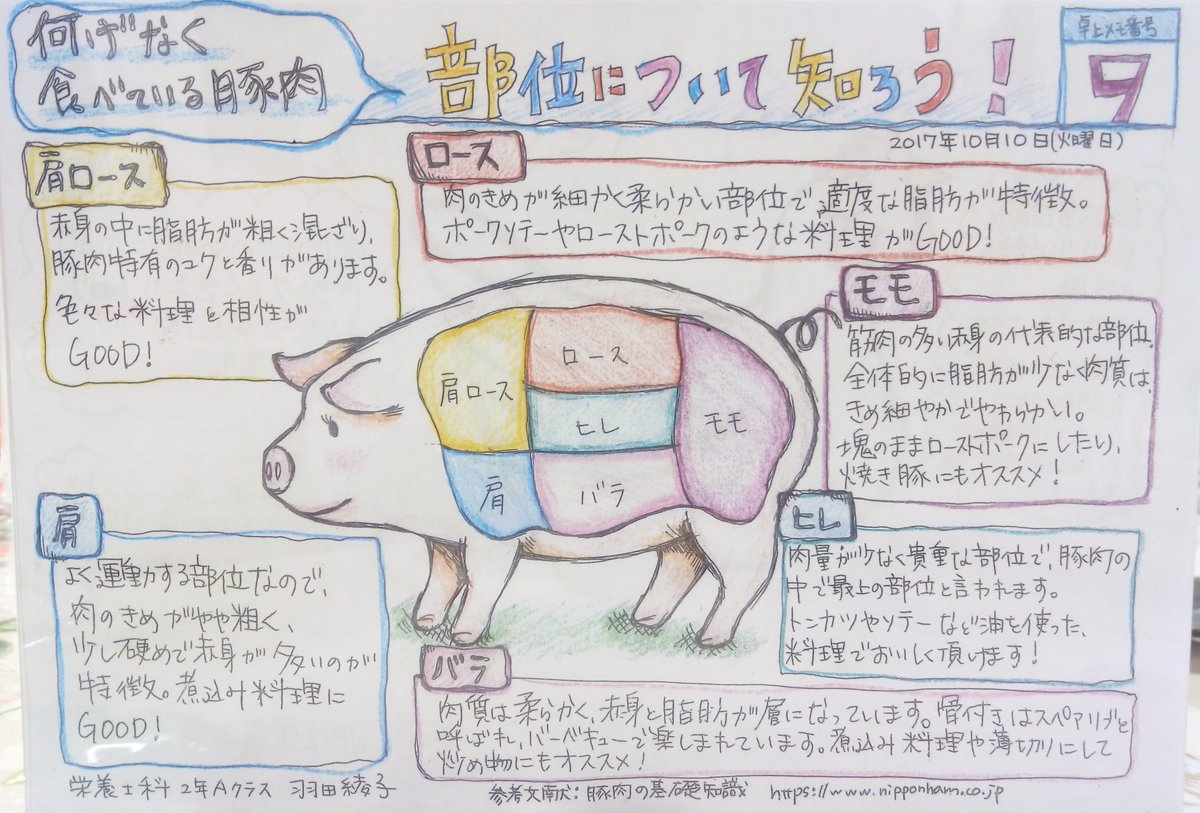 何げなく
食べている豚肉
部位について知ろう！
卓上メモ番号
9
2017年10月10日(火曜日)
肩ロース
赤身の中に脂肪が粗く混ざり、
豚肉特有のコクと香りがあります。
色々な料理と相性が
GOOD!
ロース
肉のきめが細かく柔らかい部位で、適度な脂肪が特徴。
ポークソテーやローストポークのような料理がGOOD!
モモ
筋肉の多い赤身の代表的な部位。
全体的に脂肪が少なく肉質は、
きめ細やかでやわらかい。
塊のままローストポークにしたり、
焼き豚にもオススメ！
肩ロース
ロース
ヒレ
モモ
肩
バラ
肩
よく運動する部位なので、
肉のきめがやや粗く、
少し硬めで赤身が多いのが
特徴。煮込み料理に
GOOD!
ヒレ
肉量が少なく貴重な部位で、豚肉の
中で最上の部位と言われます。
トンカツやソテーなど油を使った、
料理でおいしく頂けます！
バラ
肉質は柔らかく、赤身と脂肪が層になっています。骨付きはスペアリブと
呼ばれ、バーベキューで楽しまれています。煮込み料理や薄切りにして
炒め物にもオススメ！
栄養士科 2年Aクラス 羽田綾子
参考文献：豚肉の基礎知識 https://www.nipponham.co.jp